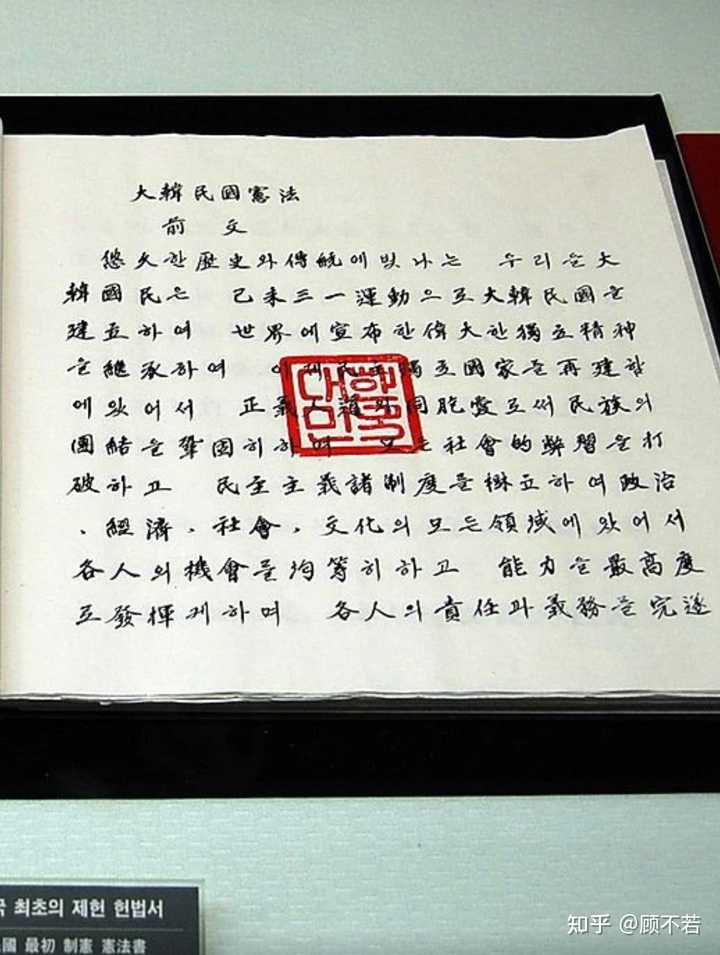 大韓民國憲法
前文
悠久한 歷史와 傳統에 빛나는 우리들 大
韓國民은 己未三一運動으로 大韓民國을
建立하여 世界에 宣布한 偉大한 獨立精神
을 繼承하여 이제 民主獨立國家를 再建함
에 있어서 正義人道와 同胞愛로써 民族의
團結을 鞏固히하여 모든 社會的 弊習을 打
破하고 民主主義諸制度를 樹立하여 政治
, 經濟, 社會, 文化의 모든 領域에 있어서
各人의 機會를 均等히하고 能力을 最高度
로 發揮케하며 各人의 責任과 義務를 完遂
대한민국
국 최초의 제헌 헌법서
國 最初 制憲 憲法書
知乎 @顾不若